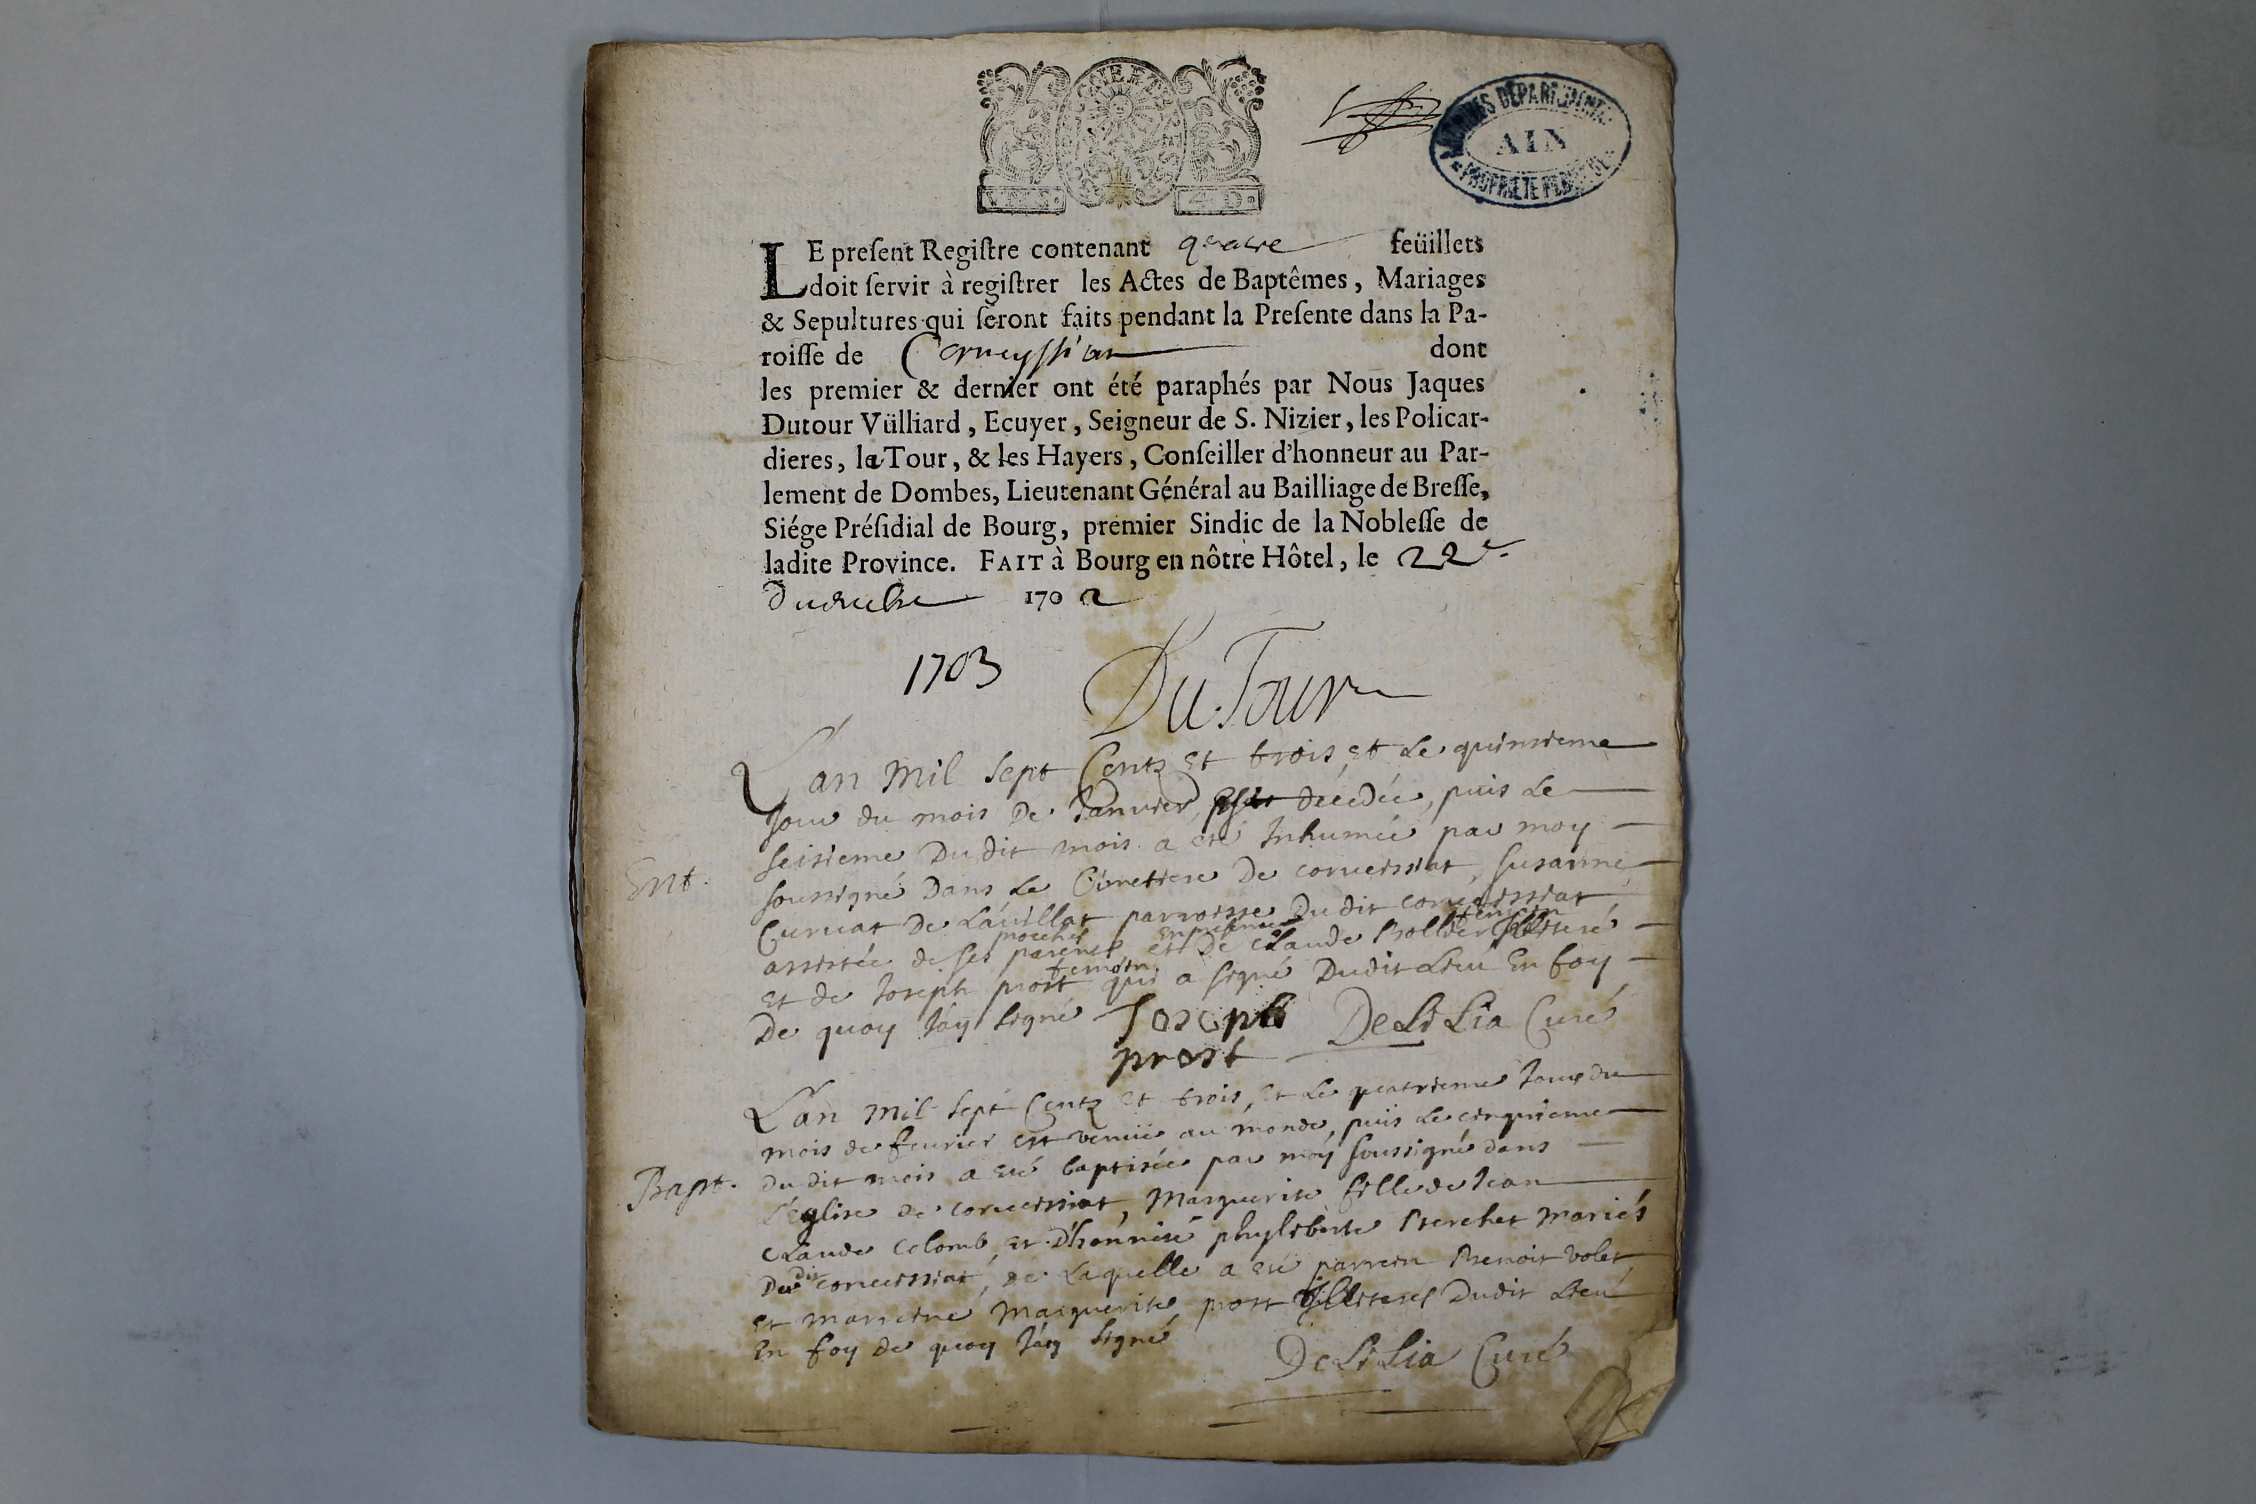 ARCHIVES DEPARTEMENTALES
AIN
PROPRIÉTÉ PUBLIQUE
LE preſent Regiſtre contenant quatre feüillets
doit ſervir à regiſtrer les Actes de Baptêmes, Mariages
& Sepultures qui ſeront faits pendant la Preſente dans la Pa-
roiſſe de dont
les premier & dernier ont été paraphés par Nous Jaques
Dutour Vülliard, Ecuyer, Seigneur de S. Nizier, les Policar-
dieres, la Tour, & les Hayers, Conſeiller d'honneur au Par-
lement de Dombes, Lieutenant Général au Bailliage de Breſſe,
Siége Préſidial de Bourg, premier Sindic de la Nobleſſe de
ladite Province. FAIT à Bourg en nôtre Hôtel, le 22e.
1702
1703
DuTour
L'an mil sept Centz et trois, et le quinsieme
Jour du mois De Janvier, décédée, puis le
seisieme Dudit mois a été Inhumée par moy
Ent.
soussigné Dans le Cimettere De corveissiat, Susanne
Curvat De Lavillat parroisse Dudit corveissiat
proches en presence temoin
assistée de ses parents et De Claude Rollier Illiteré
temoin
et de Joseph prost qui a signé Dudit Lieu En foy
De quoy J'ay signé Joseph DeLiLia Curé
prost
L'an mil sept Centz et trois, et le quatrieme Jour du
mois de feurier est venüe au monde, puis le cinquieme
Bapt.
du dit mois a eté baptisée par moy soussigné dans
L'église de corveissiat, Marguerite fille de Jean
Claude Colomb, et D'honneste phyliberte Perchet mariés
Dudit corveissiat, de Laquelle a eté parrein Benoit volet
et marreine Marguerite prost Illiterés Dudit Lieu
En foy de quoy J'ay signé
DeLiLia Curé